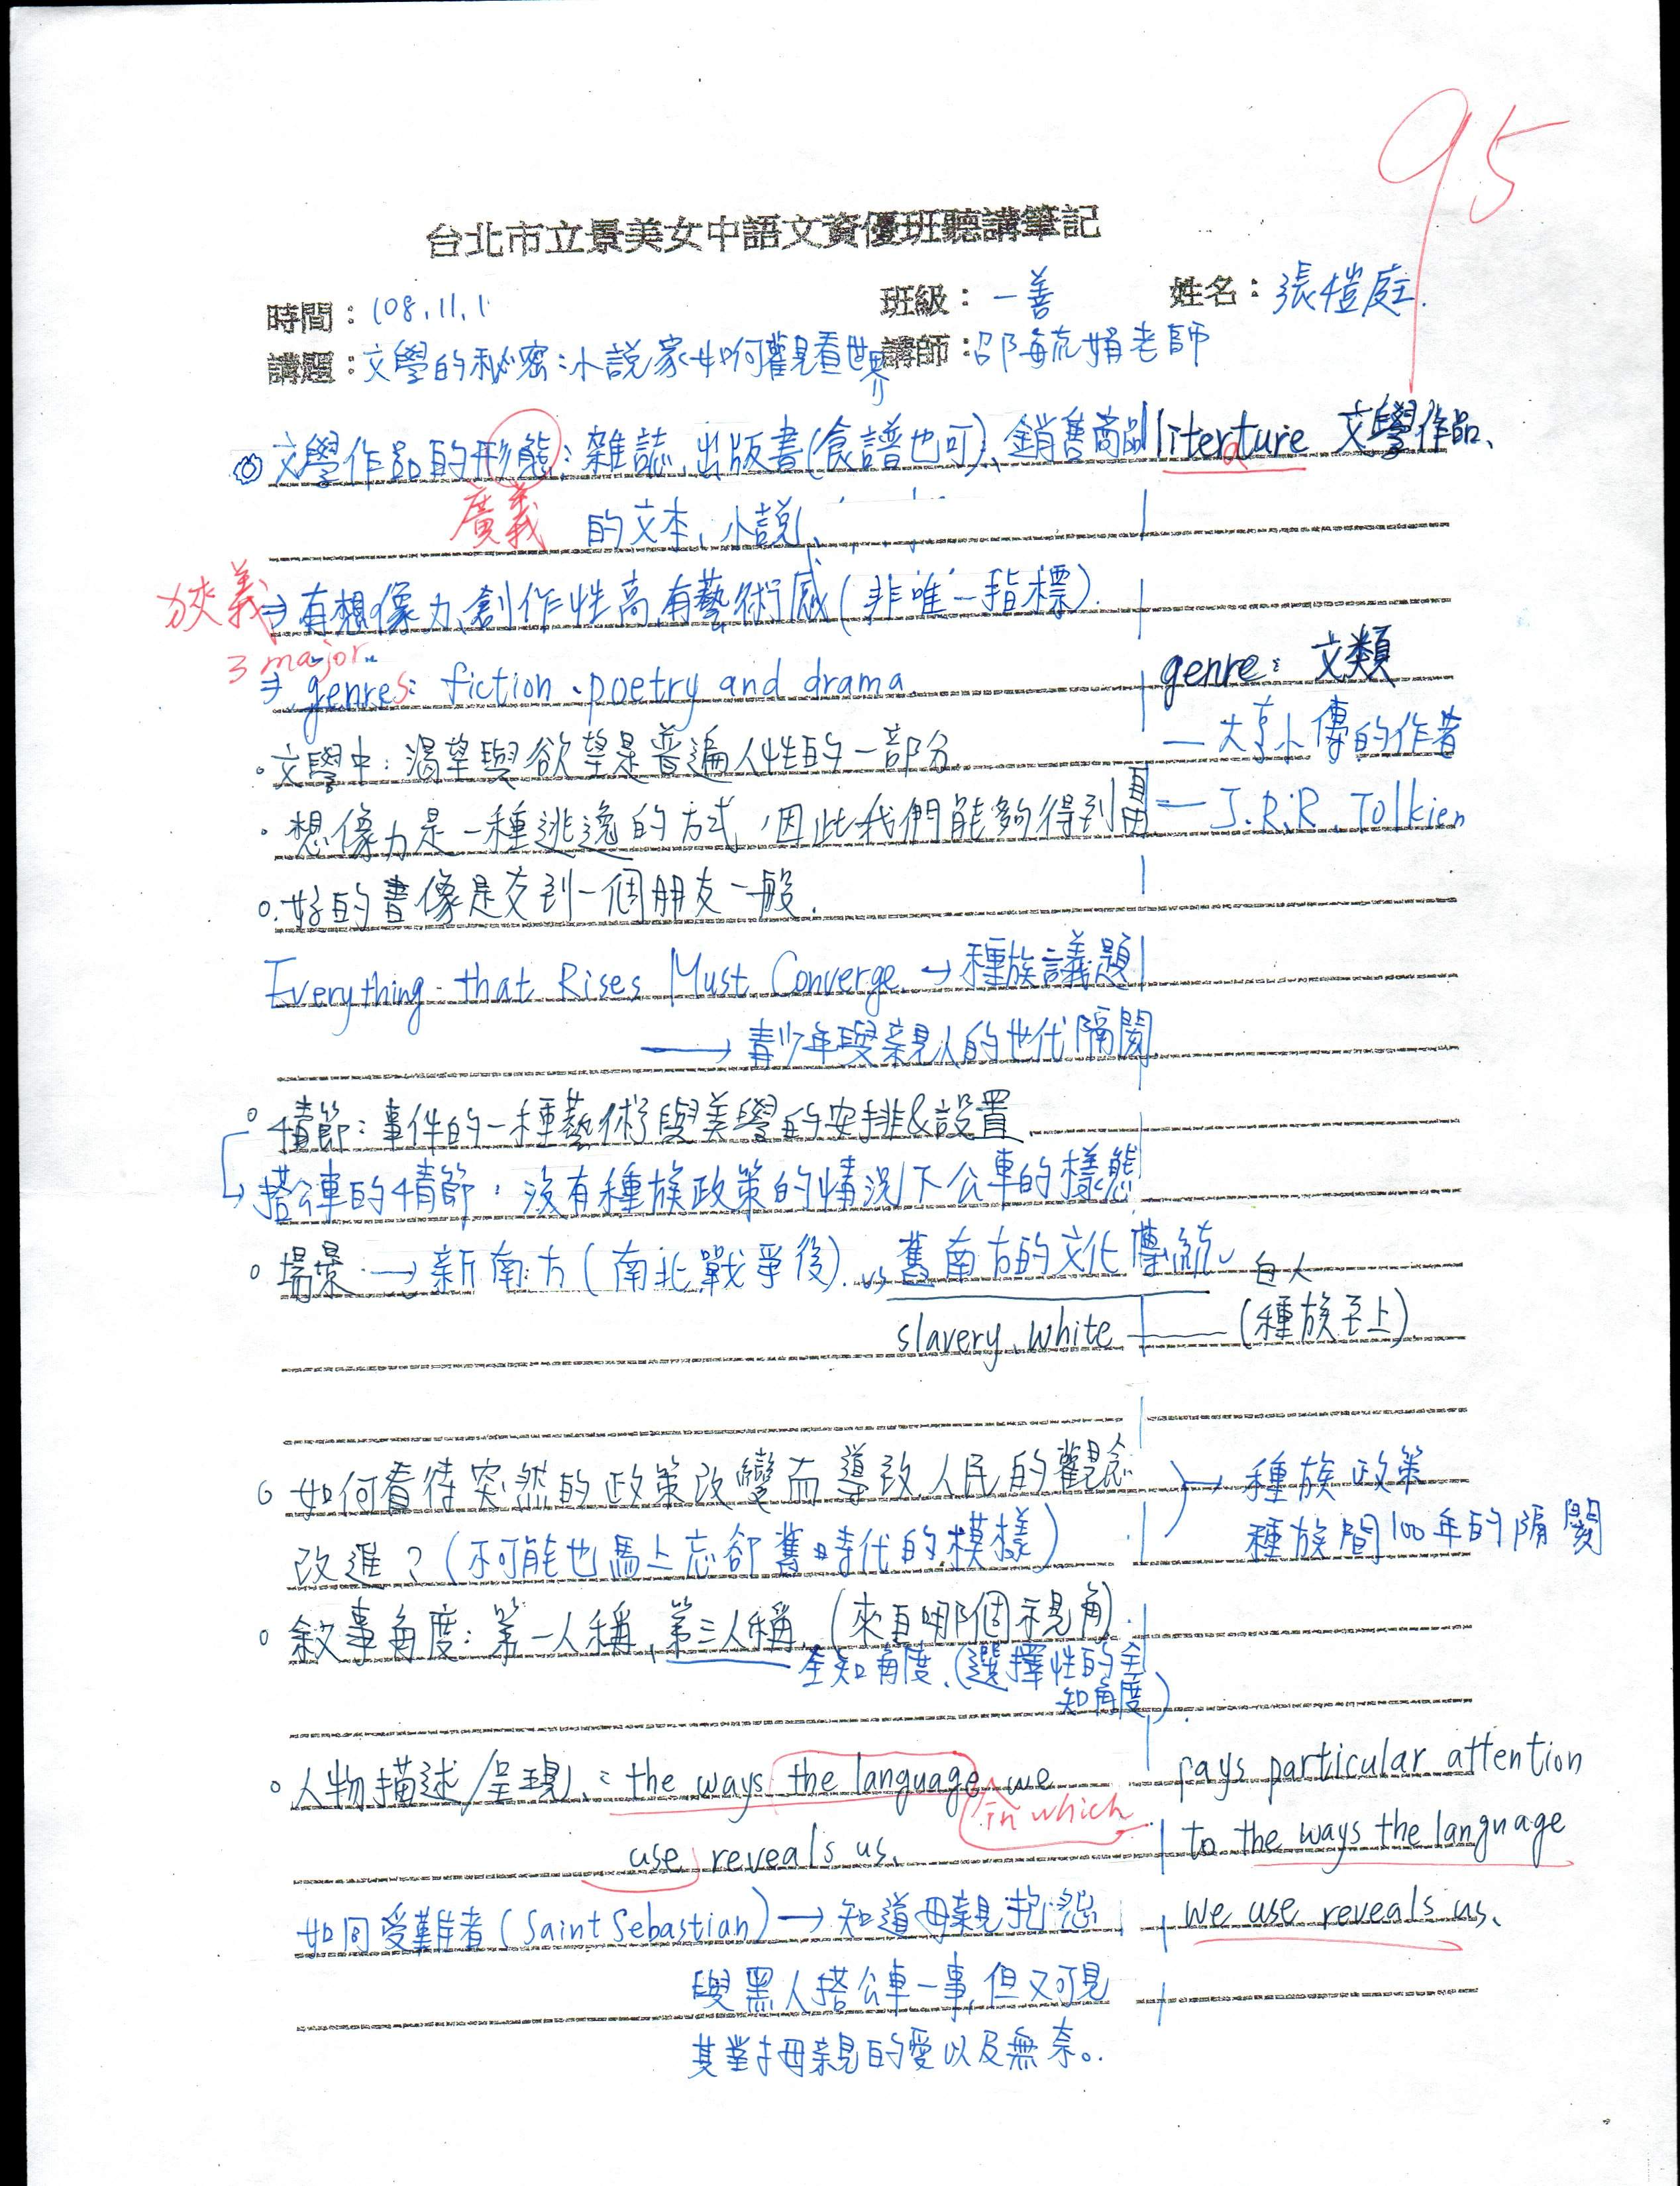 95
台北市立景美女中語文資優班聽講筆記
時間：108.11.1 班級：一善 姓名：張愷庭
講題：文學的秘密：小說家如何觀看世界 講師：邵毓娟老師
文學作品的形態：雜誌、出版書(食譜也可)、銷售商品 literature 文學作品、
廣義 的文本、小說、
狹義 ⇒ 有想像力、創作性高、有藝術感(非唯一指標).
3 major
⇒ genres: fiction、poetry and drama genre: 文類
。文學中：渴望與欲望是普遍人性的一部分 — 大亨小傳的作者
・想像力是一種逃逸的方式，因此我們能夠得到自由 — J.R.R. Tolkien
。好的書像是交到一個朋友一般.
Everything that Rises Must Converge → 種族議題
→ 青少年與親人的世代隔閡
。情節：事件的一種藝術與美學的安排&設置
↳ 搭公車的情節，沒有種族政策的情況下公車的樣態
。場景 → 新南方(南北戰爭後). vs 舊南方的文化傳統 白人
slavery、white — (種族至上)
。如何看待突然的政策改變而導致人民的觀念 → 種族政策
改進？(不可能也馬上忘卻舊時代的模樣) 種族間100年的隔閡
。敘事角度：第一人稱、第三人稱 (來自哪個視角).
全知角度.(選擇性的全
知角度).
。人物描述/呈現：the ways the language we pays particular attention
in which
use reveals us. to the ways the language
如同受難者(Saint Sebastian) → 知道母親抱怨 we use reveals us.
與黑人搭公車一事，但又可見
其對母親的愛以及無奈。